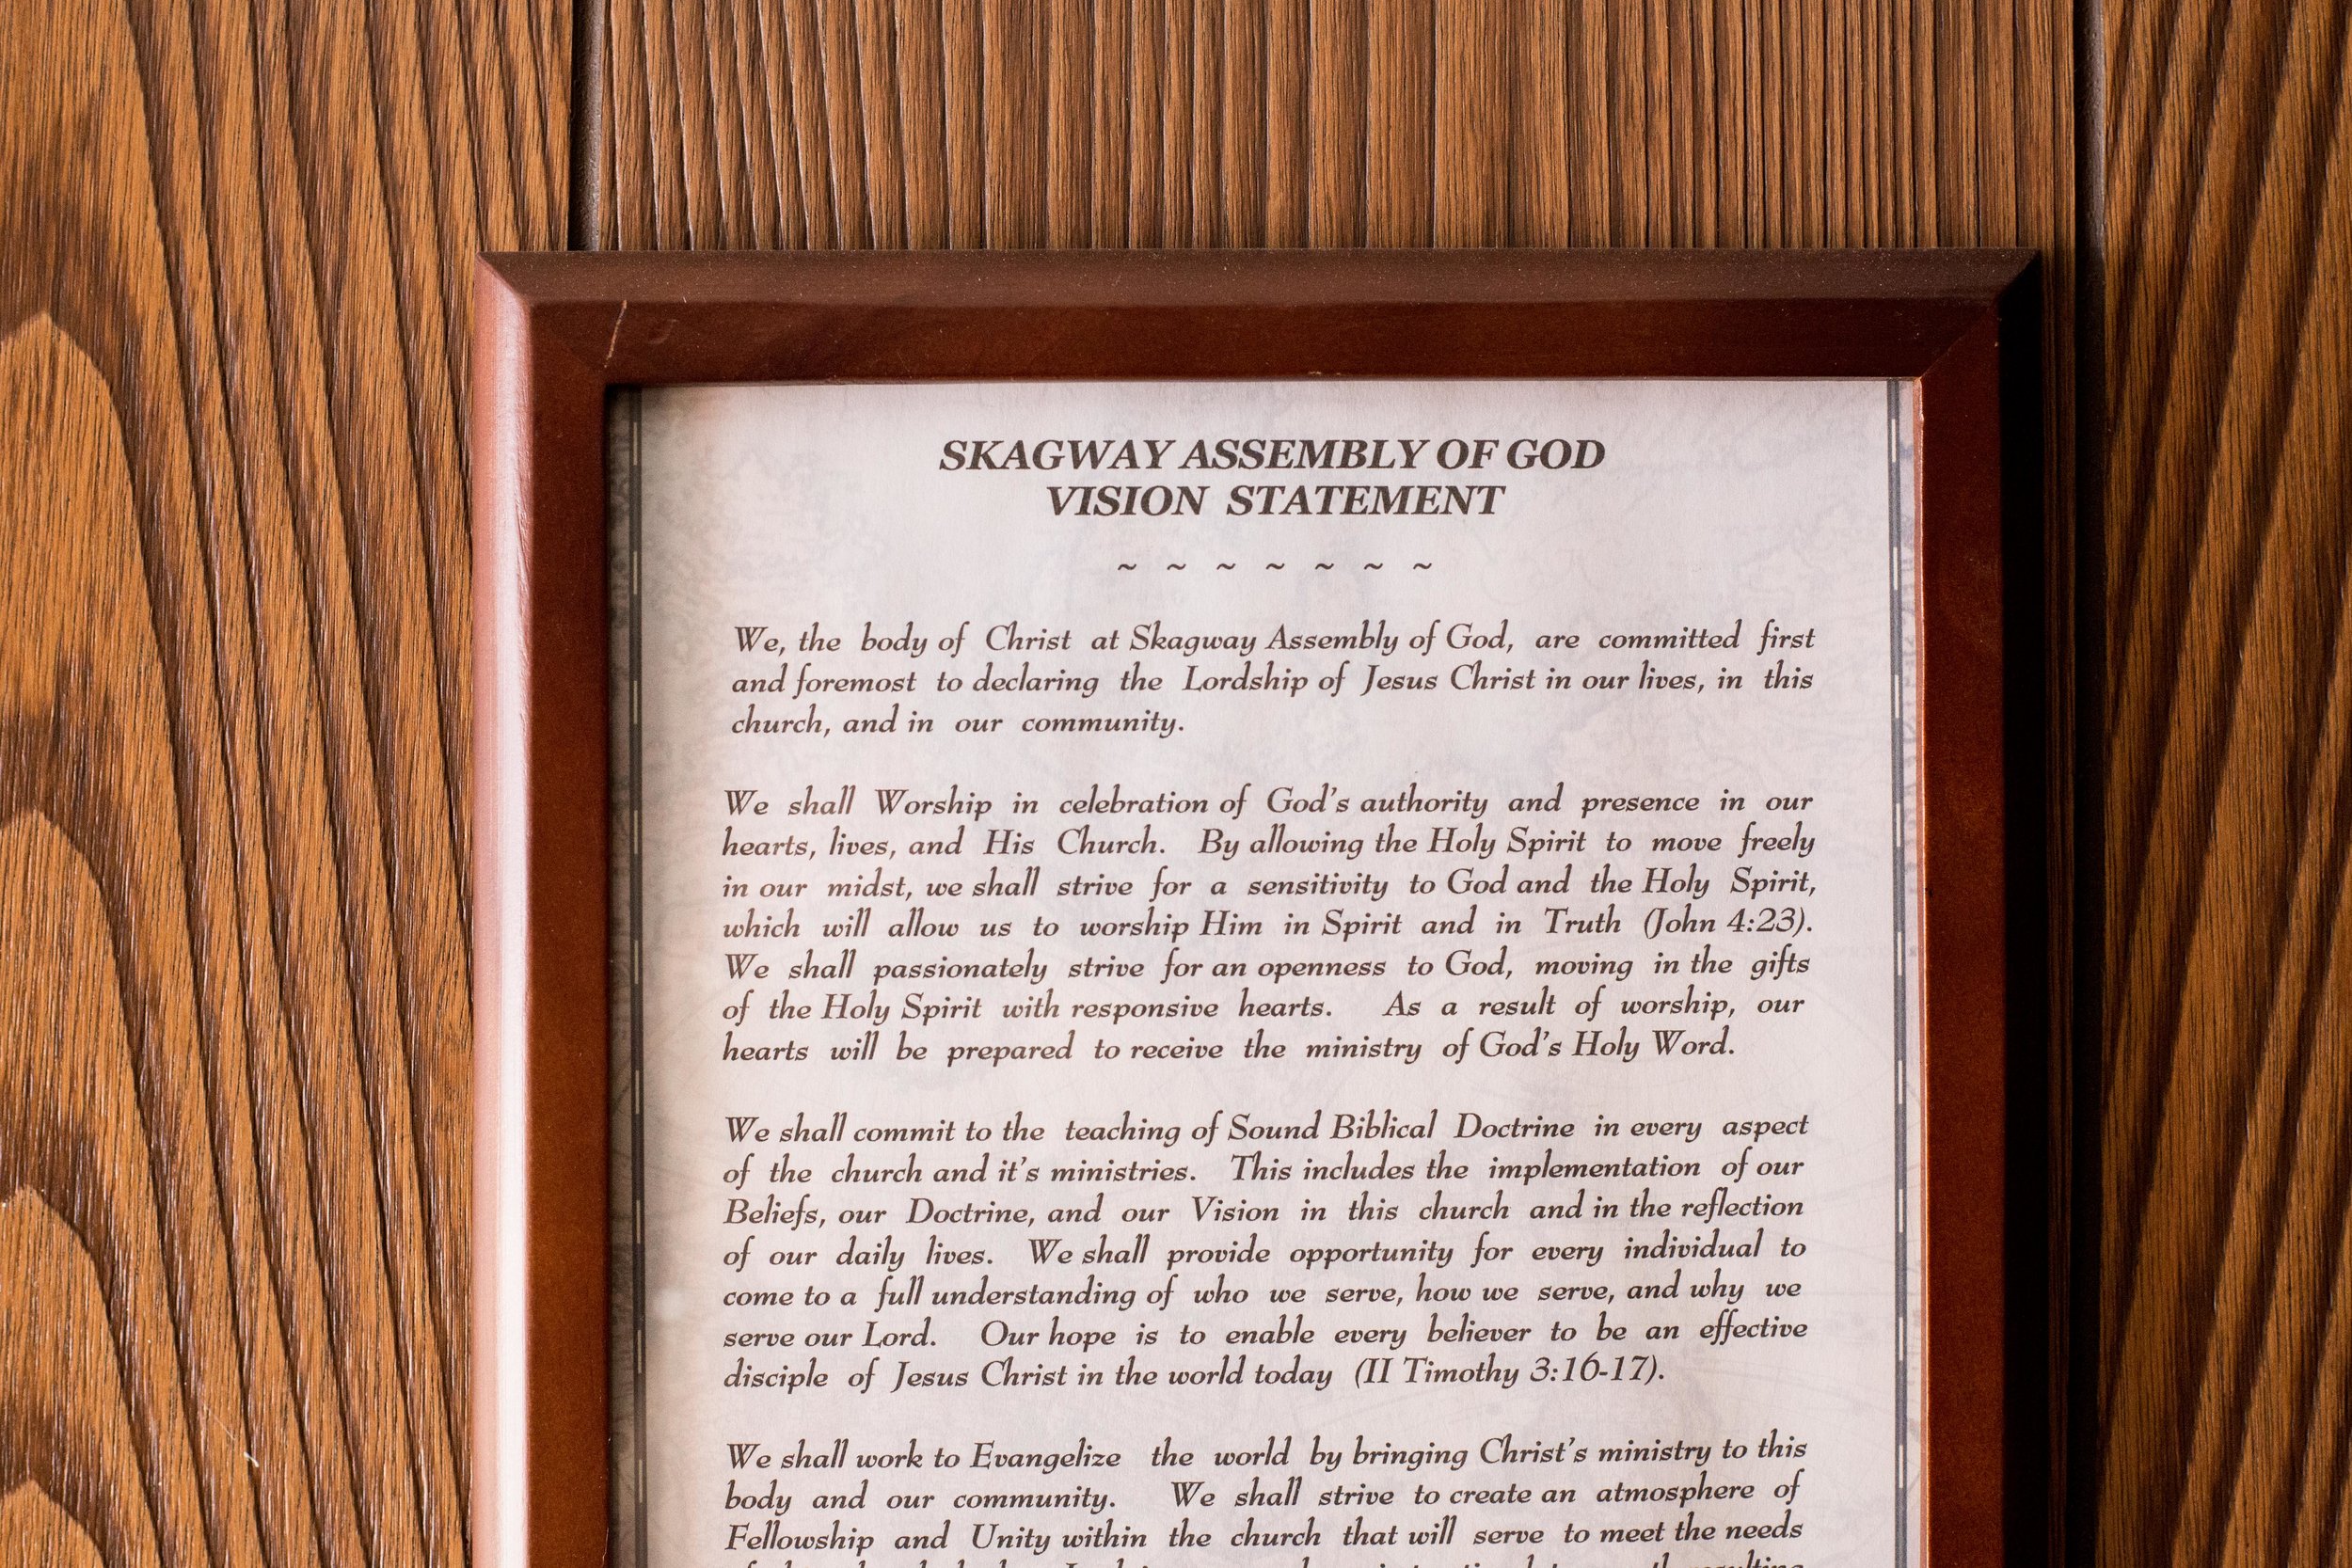 SKAGWAY ASSEMBLY OF GOD
VISION STATEMENT
~ ~ ~ ~ ~ ~ ~
We, the body of Christ at Skagway Assembly of God, are committed first
and foremost to declaring the Lordship of Jesus Christ in our lives, in this
church, and in our community.
We shall Worship in celebration of God's authority and presence in our
hearts, lives, and His Church. By allowing the Holy Spirit to move freely
in our midst, we shall strive for a sensitivity to God and the Holy Spirit,
which will allow us to worship Him in Spirit and in Truth (John 4:23).
We shall passionately strive for an openness to God, moving in the gifts
of the Holy Spirit with responsive hearts. As a result of worship, our
hearts will be prepared to receive the ministry of God's Holy Word.
We shall commit to the teaching of Sound Biblical Doctrine in every aspect
of the church and it's ministries. This includes the implementation of our
Beliefs, our Doctrine, and our Vision in this church and in the reflection
of our daily lives. We shall provide opportunity for every individual to
come to a full understanding of who we serve, how we serve, and why we
serve our Lord. Our hope is to enable every believer to be an effective
disciple of Jesus Christ in the world today (II Timothy 3:16-17).
We shall work to Evangelize the world by bringing Christ's ministry to this
body and our community. We shall strive to create an atmosphere of
Fellowship and Unity within the church that will serve to meet the needs